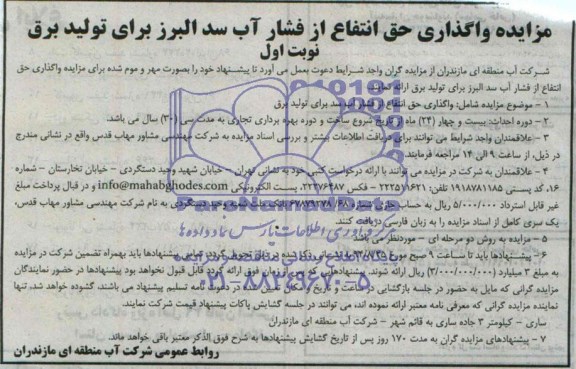 مزایده واگذاری حق انتفاع از فشار آب سد البرز برای تولید برق
نوبت اول
شرکت آب منطقه ای مازندران از مزایده گران واجد شرایط دعوت بعمل می آورد تا پیشنهاد خود را بصورت مهر و موم شده برای مزایده واگذاری حق
انتفاع از فشار آب سد البرز برای تولید برق ارائه نمایند.
۱ - موضوع مزایده شامل: واگذاری حق انتفاع از فشار آب سد برای تولید برق
۲ - دوره احداث: بیست و چهار (۲۴) ماه از تاریخ شروع ساخت و دوره بهره برداری تجاری به مدت سی (۳۰) سال می باشد.
۳ - علاقمندان واجد شرایط می توانند برای دریافت اطلاعات بیشتر و بررسی اسناد مزایده به شرکت مهندسی مشاور مهاب قدس واقع در نشانی مندرج
در ذیل، از ساعت ۹ الی ۱۴ مراجعه فرمایند.
۴ - علاقمندان به شرکت در مزایده می توانند با ارائه درخواست کتبی خود به نشانی تهران - خیابان شهید وحید دستگردی - خیابان تخارستان - شماره
۱۶، کد پستی ۱۹۱۸۷۸۱۱۸۵ تلفن: ۲۲۲۵۱۶۲۱ - فکس ۲۲۲۷۶۴۸۷، پست الکترونیکی info@mahabghodes.com و در قبال پرداخت مبلغ
غیر قابل استرداد ۵/۰۰۰/۰۰۰ ریال به حساب جاری شماره دستگردی به نام شرکت مهندسی مشاور مهاب قدس،
یک سری کامل از اسناد مزایده را به زبان فارسی دریافت کنند.
۵ - مزایده به روش دو مرحله ای - موردنظر می باشد
۶ - پیشنهادها باید تا ساعت ۹ صبح مورخ تحویل گردد. تمامی پیشنهادها باید بهمراه تضمین شرکت در مزایده
به مبلغ ۳ میلیارد (۳/۰۰۰/۰۰۰/۰۰۰) ریال ارائه شوند. پیشنهادهایی که پس از زمان فوق ارائه گردد قابل قبول نخواهد بود پیشنهادها در حضور نمایندگان
مزایده گرانی که مایل به حضور در جلسه بازگشایی در ساعت و تاریخ تسلیم پیشنهاد می باشند، گشوده خواهد شد، تنها
نماینده مزایده گرانی که معرفی نامه معتبر ارائه نموده اند، می توانند در جلسه گشایش پاکات پیشنهاد قیمت شرکت نمایند.
ساری - کیلومتر ۳ جاده ساری به قائم شهر - شرکت آب منطقه ای مازندران
۷ - پیشنهادهای مزایده گران به مدت ۱۷۰ روز پس از تاریخ گشایش پیشنهادها به شرح فوق الذکر معتبر باقی خواهد ماند.
روابط عمومی شرکت آب منطقه ای مازندران
ParsNamadData
مرکز فرآوری اطلاعات پارس نماد داده ها
۰۲۱-۸۸۳۴۹۶۷۰-۵